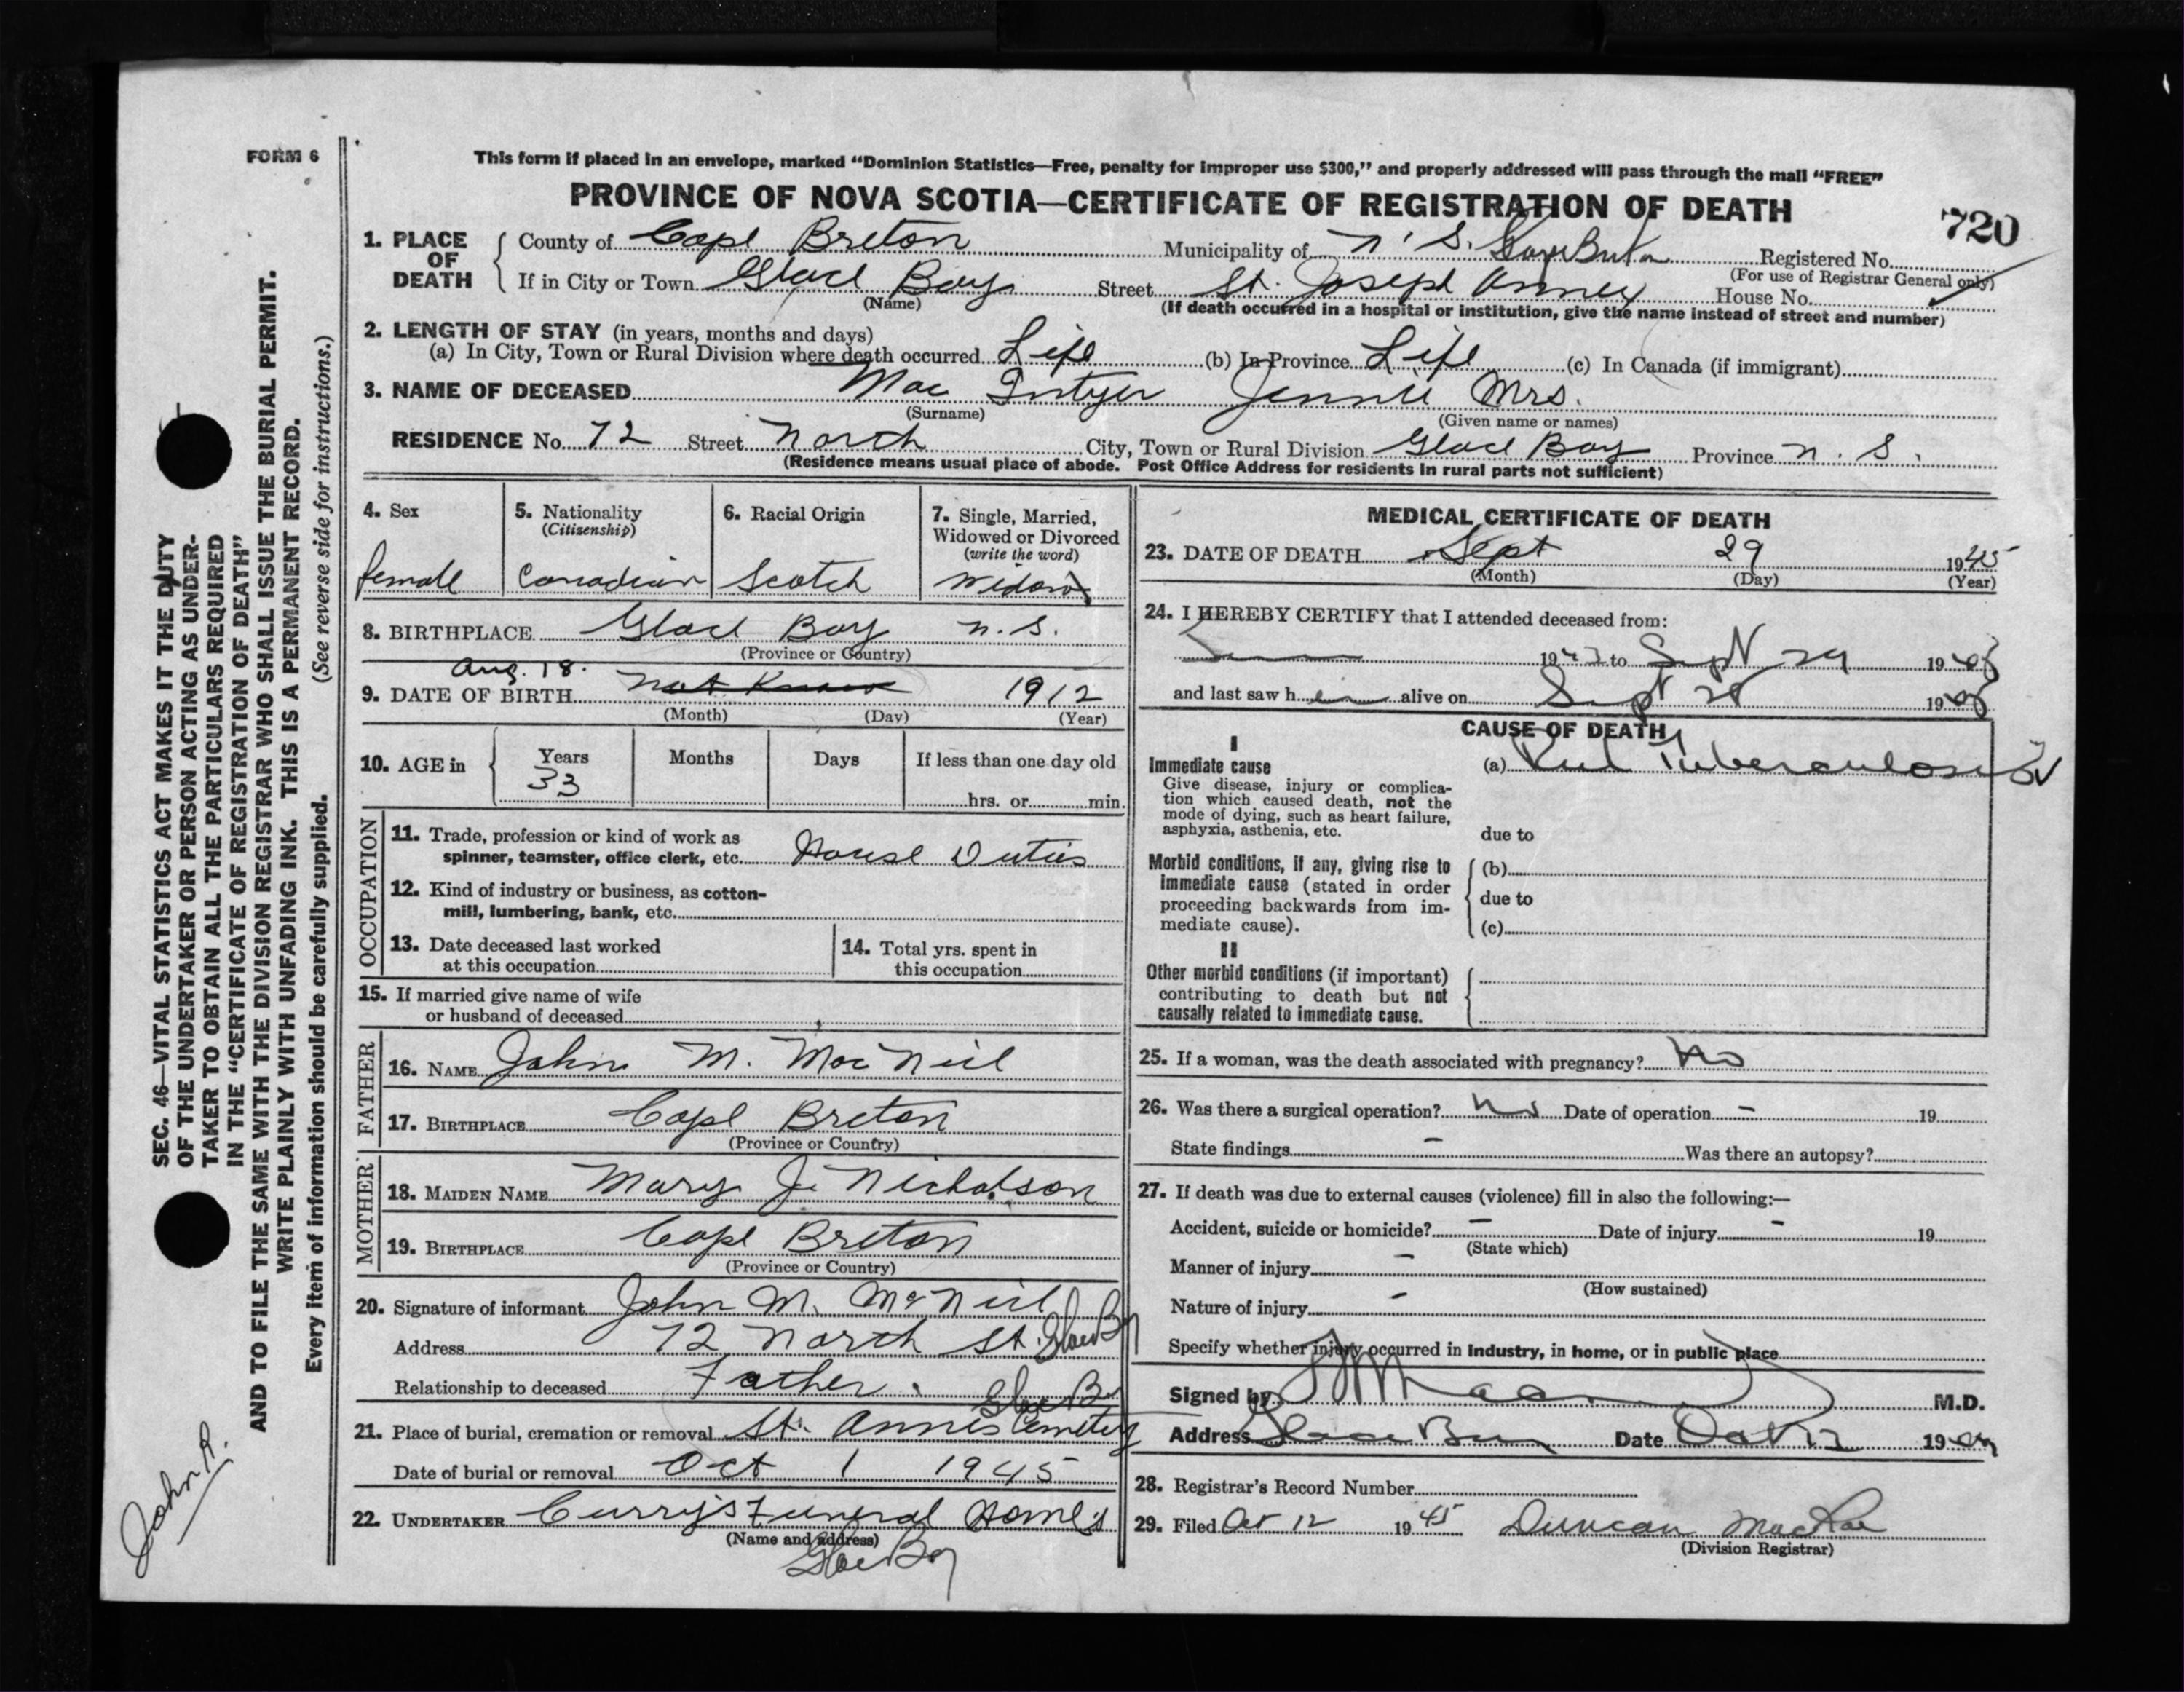 FORM 6
This form if placed in an envelope, marked “Dominion Statistics—Free, penalty for improper use $300,” and properly addressed will pass through the mail “FREE”
PROVINCE OF NOVA SCOTIA—CERTIFICATE OF REGISTRATION OF DEATH
720
1. PLACE OF DEATH
County of Cape Breton Municipality of Cape Breton Registered No.
(For use of Registrar General only)
If in City or Town Glace Bay Street St. Joseph Annex House No.
(Name) (If death occurred in a hospital or institution, give the name instead of street and number)
2. LENGTH OF STAY (in years, months and days)
(a) In City, Town or Rural Division where death occurred Life (b) In Province Life (c) In Canada (if immigrant)
3. NAME OF DECEASED Mac Intyer Jennie Mrs.
(Surname) (Given name or names)
RESIDENCE No. 72 Street North City, Town or Rural Division Glace Bay Province N. S.
(Residence means usual place of abode. Post Office Address for residents in rural parts not sufficient)
4. Sex
female
5. Nationality
(Citizenship)
Canadian
6. Racial Origin
Scotch
7. Single, Married,
Widowed or Divorced
(write the word)
Widow
8. BIRTHPLACE Glace Bay N. S.
(Province or Country)
Aug. 18.
9. DATE OF BIRTH Not Know 1912
(Month) (Day) (Year)
10. AGE in
Years Months Days If less than one day old
33 hrs. or min.
OCCUPATION
11. Trade, profession or kind of work as
spinner, teamster, office clerk, etc. House Duties
12. Kind of industry or business, as cotton-
mill, lumbering, bank, etc.
13. Date deceased last worked
at this occupation
14. Total yrs. spent in
this occupation
15. If married give name of wife
or husband of deceased
FATHER
16. NAME John M. MacNeil
17. BIRTHPLACE Cape Breton
(Province or Country)
MOTHER
18. MAIDEN NAME Mary J. Nicholson
19. BIRTHPLACE Cape Breton
(Province or Country)
20. Signature of informant John M. McNeil
Address 72 North St. Glace Bay
Relationship to deceased Father.
Glace Bay
21. Place of burial, cremation or removal St. Annes Cemetery
Date of burial or removal Oct 1 1945
22. UNDERTAKER Curry's Funeral Home
(Name and address)
Glace Bay
MEDICAL CERTIFICATE OF DEATH
23. DATE OF DEATH Sept 29 1945
(Month) (Day) (Year)
24. I HEREBY CERTIFY that I attended deceased from:
19 to Sept 29 1945
and last saw her alive on Sept 1945
CAUSE OF DEATH
I
Immediate cause
Give disease, injury or complica-
tion which caused death, not the
mode of dying, such as heart failure,
asphyxia, asthenia, etc.
(a) Tuberculosis
due to
Morbid conditions, if any, giving rise to
immediate cause (stated in order
proceeding backwards from im-
mediate cause).
(b)
due to
(c)
II
Other morbid conditions (if important)
contributing to death but not
causally related to immediate cause.
25. If a woman, was the death associated with pregnancy? No
26. Was there a surgical operation? No Date of operation - 19
State findings - Was there an autopsy?
27. If death was due to external causes (violence) fill in also the following:—
Accident, suicide or homicide? - Date of injury - 19
(State which)
Manner of injury -
(How sustained)
Nature of injury -
Specify whether injury occurred in industry, in home, or in public place
Signed by M.D.
Address Glace Bay Date Oct 19
28. Registrar's Record Number
29. Filed Oct 12 1945 Duncan MacRae
(Division Registrar)
SEC. 46—VITAL STATISTICS ACT MAKES IT THE DUTY
OF THE UNDERTAKER OR PERSON ACTING AS UNDER-
TAKER TO OBTAIN ALL THE PARTICULARS REQUIRED
IN THE “CERTIFICATE OF REGISTRATION OF DEATH”
AND TO FILE THE SAME WITH THE DIVISION REGISTRAR WHO SHALL ISSUE THE BURIAL PERMIT.
WRITE PLAINLY WITH UNFADING INK. THIS IS A PERMANENT RECORD.
Every item of information should be carefully supplied. (See reverse side for instructions.)
John R.